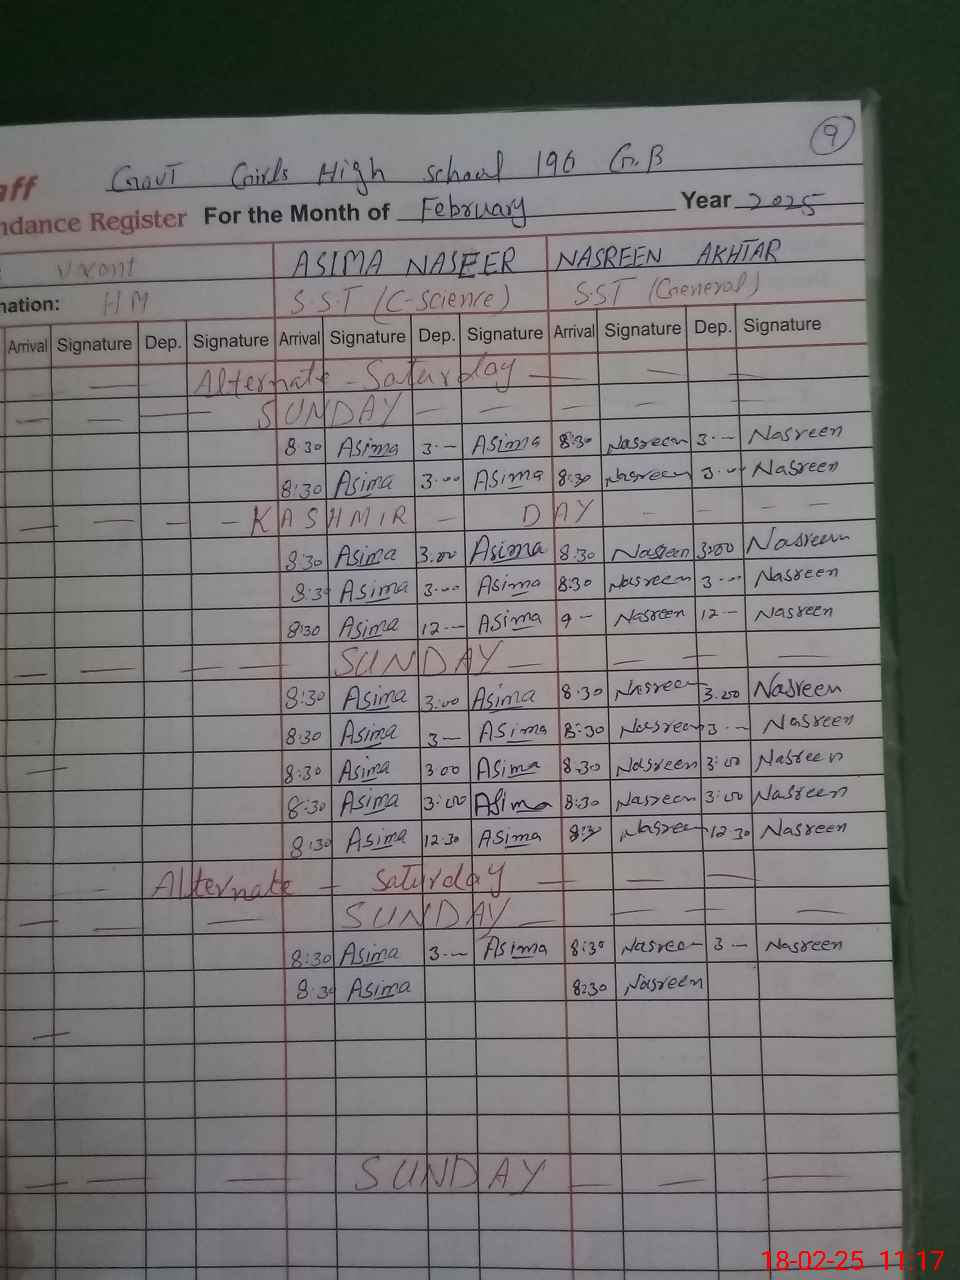 9
Govt Girls High School 196 G.B
aff
ndance Register For the Month of February Year 2025
: Vacant ASIMA NASEER NASREEN AKHTAR
nation: HM S.S.T (C-Science) S.ST (General)
Arrival Signature Dep. Signature Arrival Signature Dep. Signature Arrival Signature Dep. Signature
Alternate - Saturday
SUNDAY
8:30 Asima 3.-- Asima 8:30 Nasreen 3.-- Nasreen
8:30 Asima 3.00 Asima 8:30 Nasreen 3.00 Nasreen
KASHMIR DAY
8:30 Asima 3.00 Asima 8:30 Nasreen 3:00 Nasreen
8:30 Asima 3.-- Asima 8:30 Nasreen 3.-- Nasreen
8:30 Asima 12-- Asima 9 - Nasreen 12-- Nasreen
SUNDAY
8:30 Asima 3:00 Asima 8:30 Nasreen 3.00 Nasreen
8:30 Asima 3-- Asima 8:30 Nasreen 3.-- Nasreen
8:30 Asima 3:00 Asima 8:30 Nasreen 3:00 Nasreen
8:30 Asima 3:00 Asima 8:30 Nasreen 3:00 Nasreen
8:30 Asima 12.30 Asima 8:30 Nasreen 12.30 Nasreen
Alternate - Saturday
SUNDAY
8:30 Asima 3.-- Asima 8:30 Nasreen 3 -- Nasreen
8:30 Asima 8:30 Nasreen
SUNDAY
18-02-25 11:17